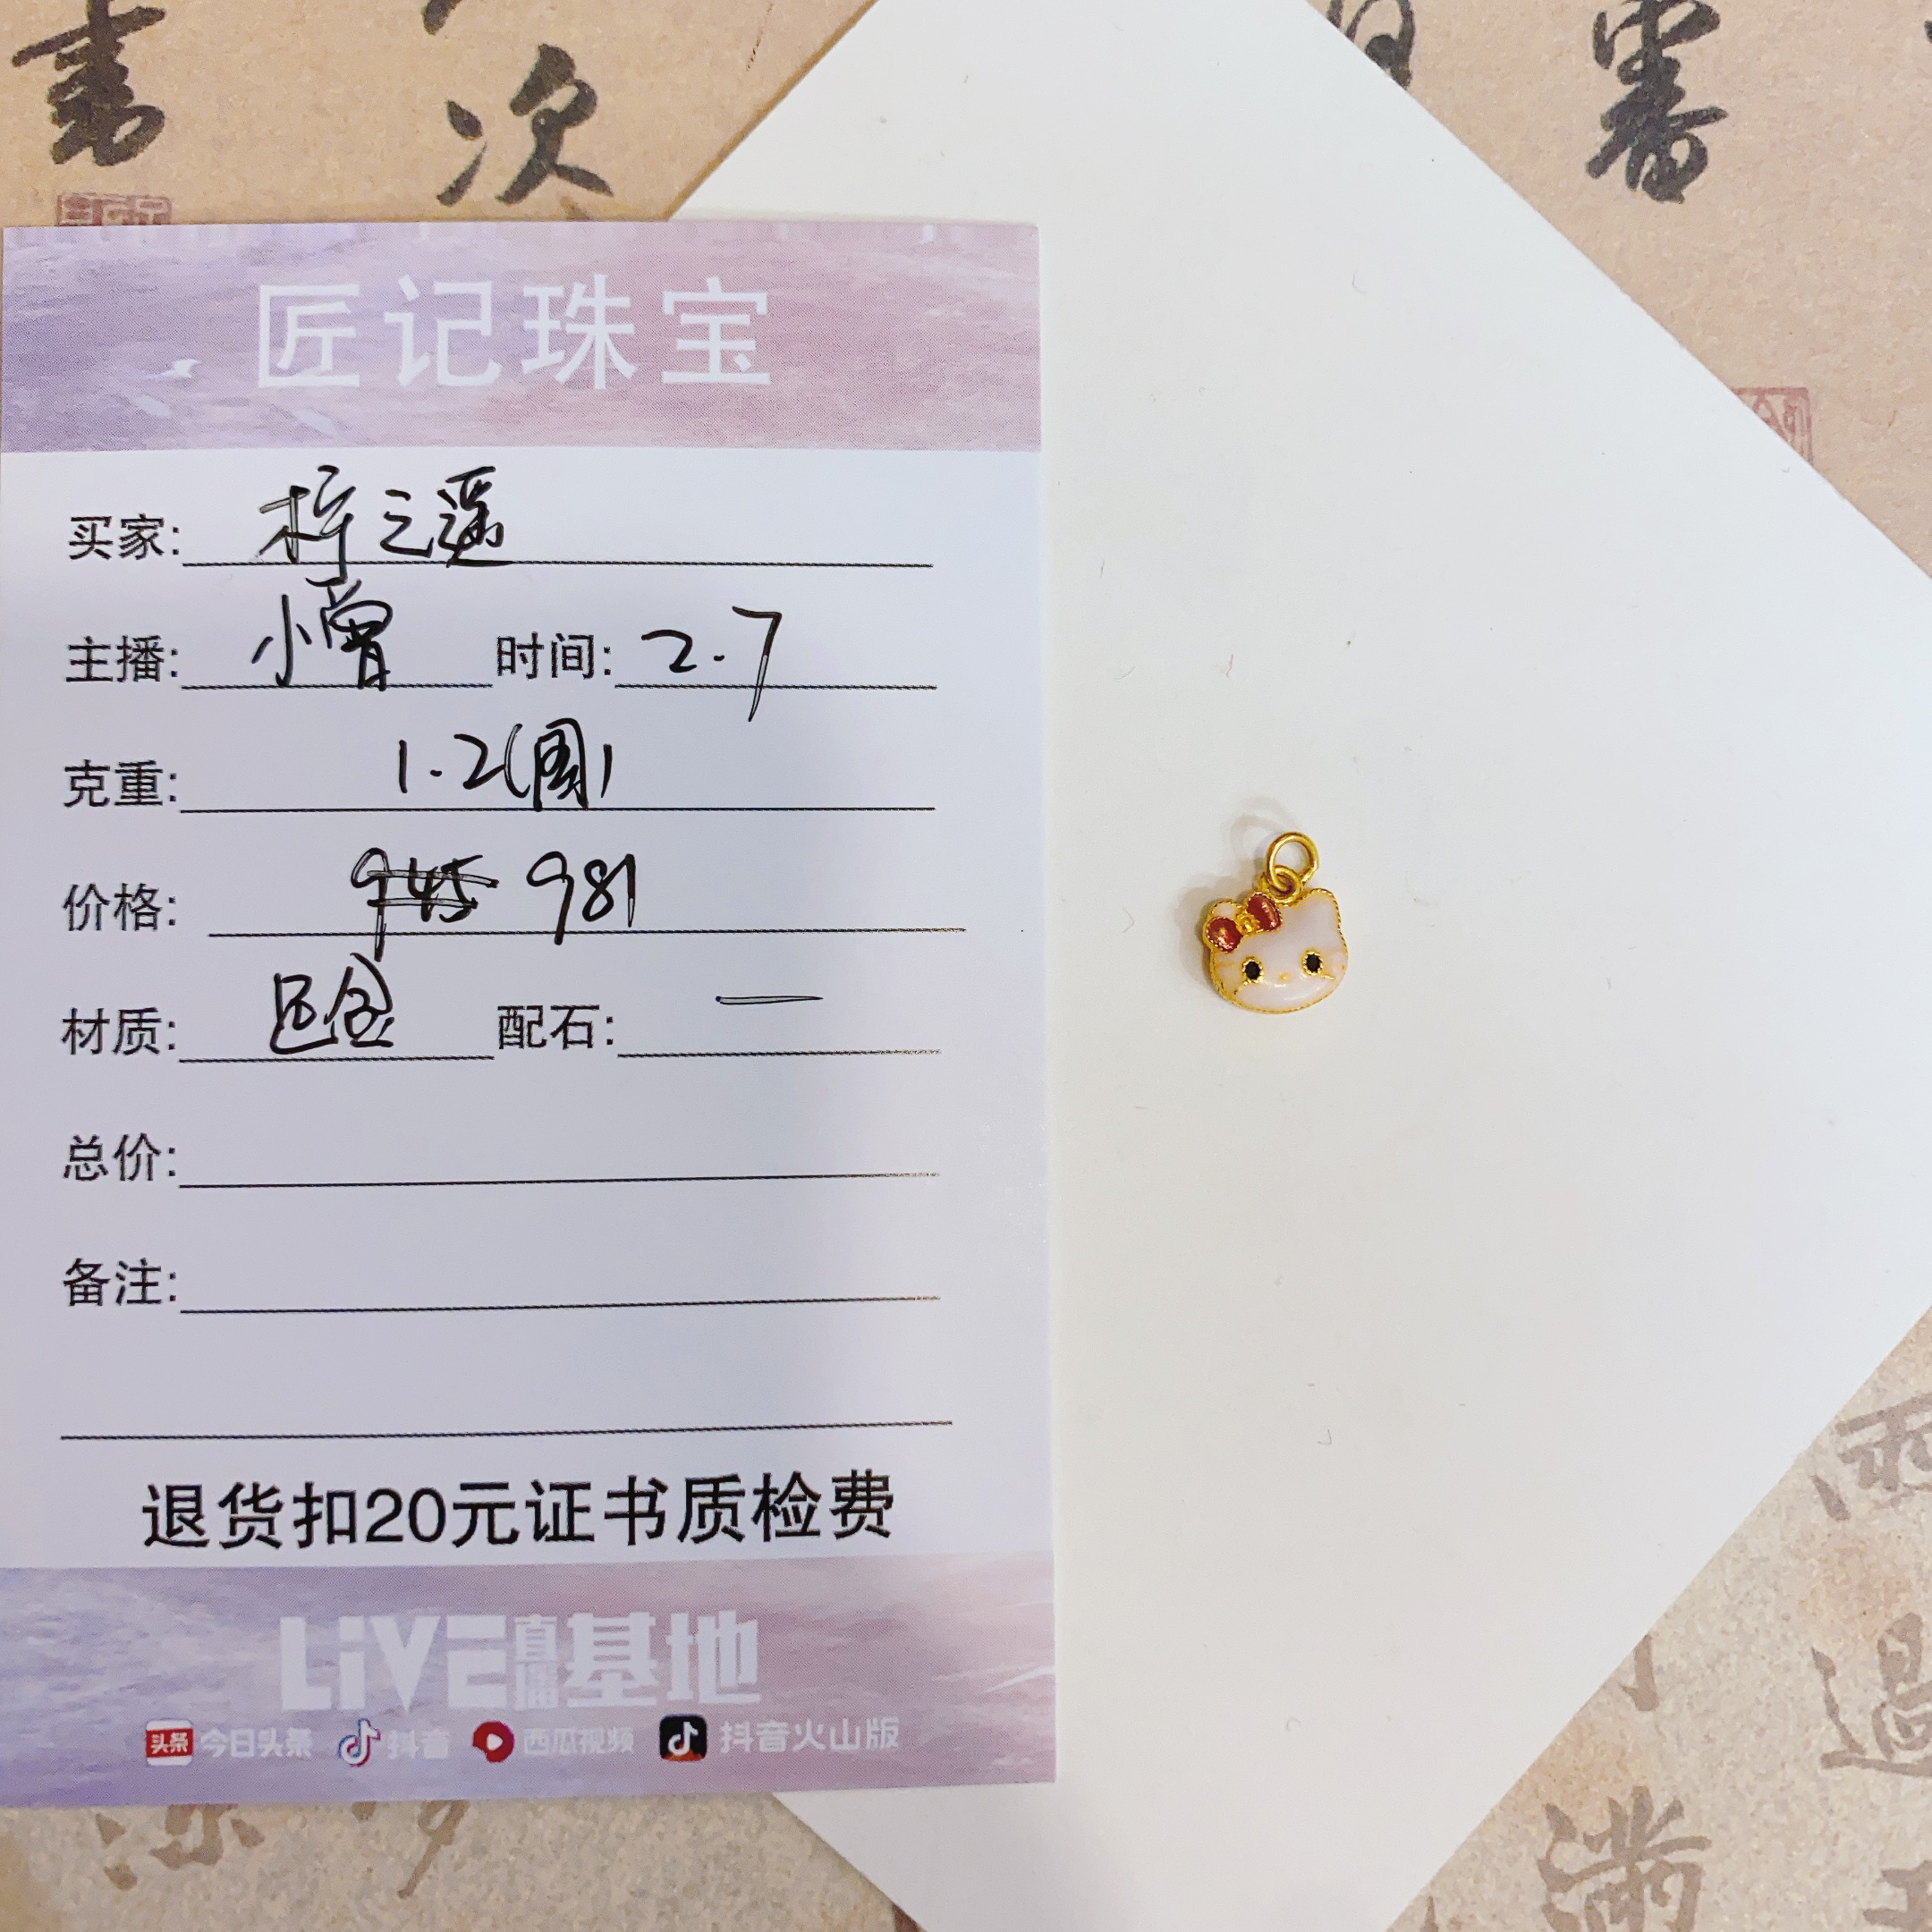 書
次
番
匠记珠宝
买家: 梓之遥
主播: 小曾 时间: 2.7
克重: 1.2(圈)
价格: 945 981
材质: 足金 配石: 一
总价:
备注:
退货扣20元证书质检费
LiVE直播基地
头条 今日头条 抖音 西瓜视频 抖音火山版
雨
過
满